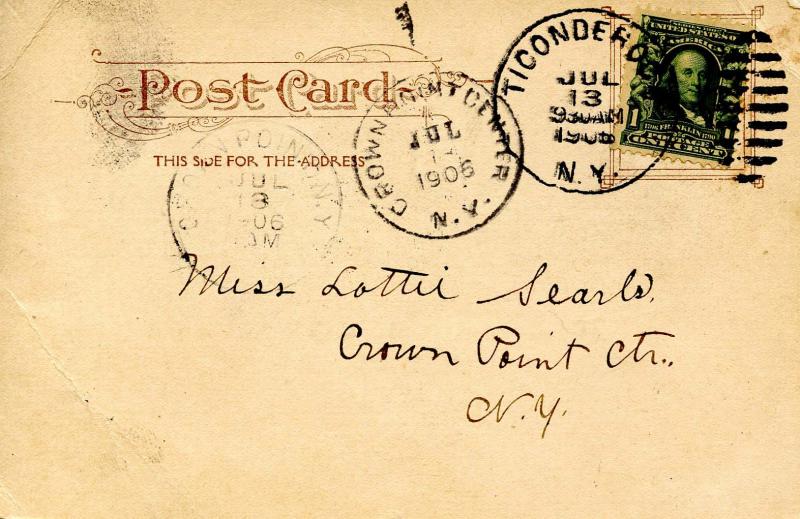 Post Card
THIS SIDE FOR THE ADDRESS
TICONDERO
JUL
13
930AM
1906
N.Y.
UNITED STATES O
AMERICA
1
FRANKLIN
ONE CENT
CROWN POINT CENTER
JUL
1906
N.Y.
CROWN POINT N.Y.
JUL
13
1906
Miss Lottie Searls.
Crown Point Ctr.,
N.Y.